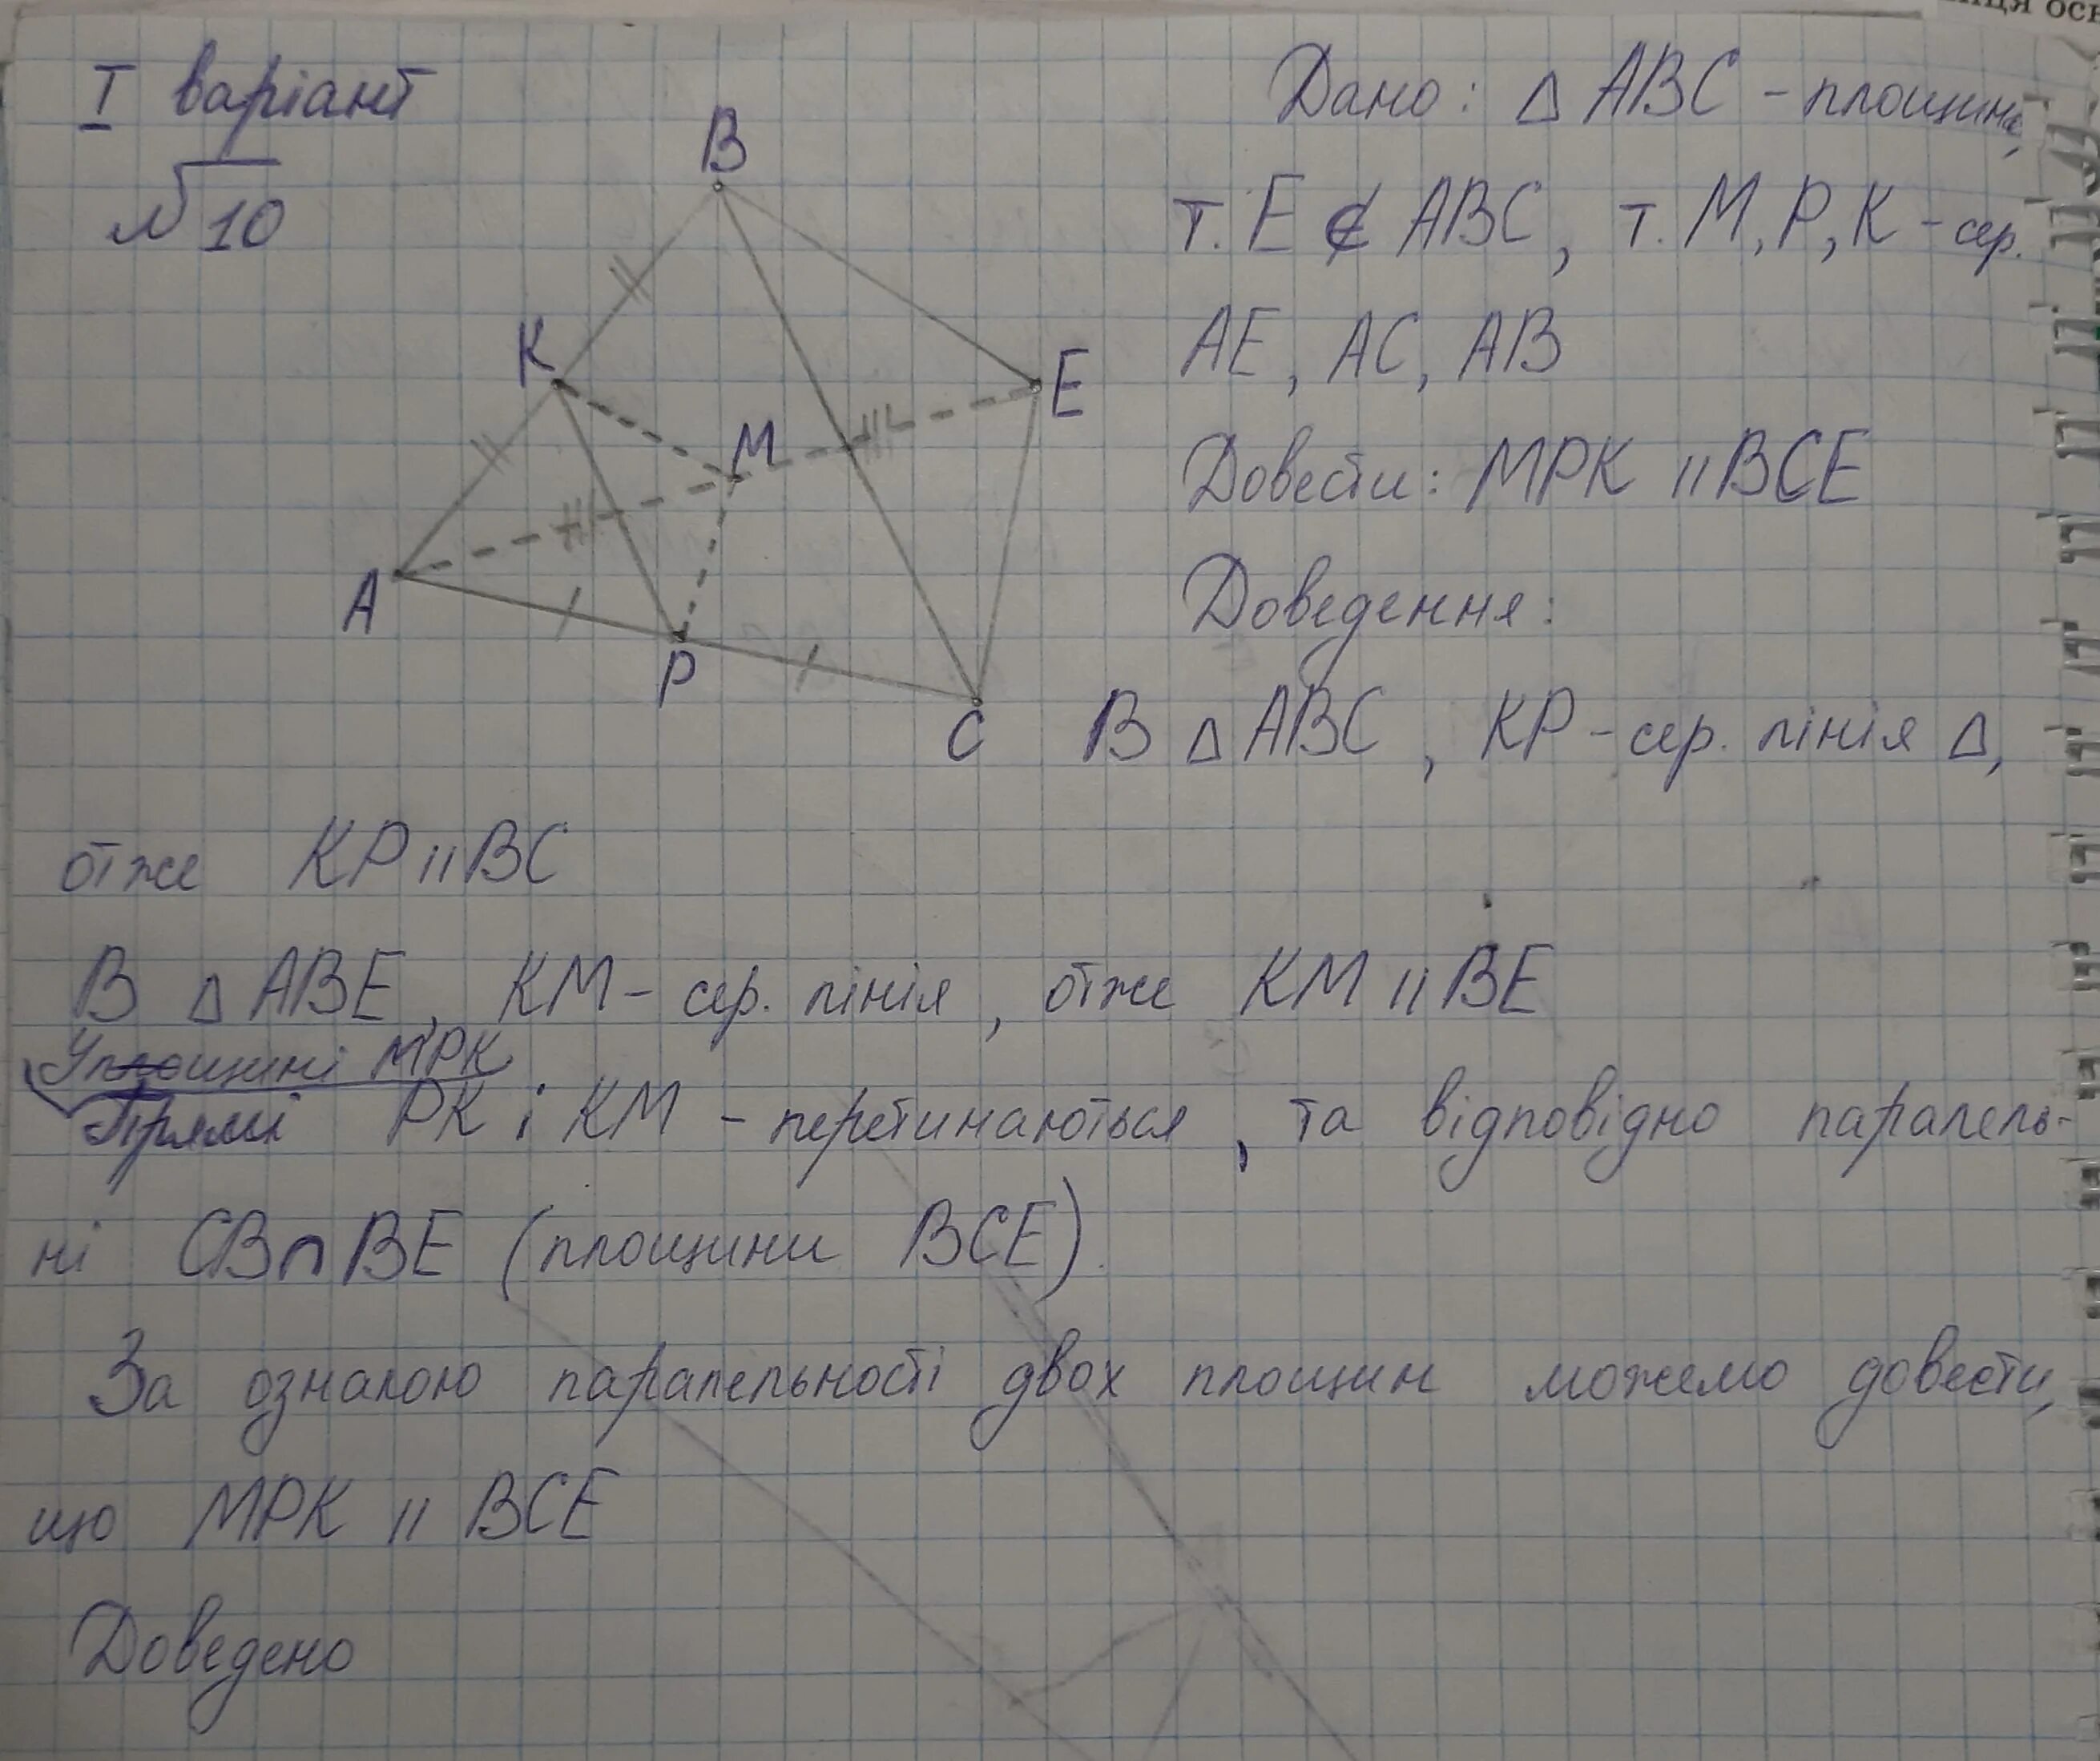 иця осн
I варіант
№10
Дано: △ ABC - площина,
т. E ∉ ABC, т. M, P, K - сер.
AE, AC, AB
Довести: MPK || BCE
Доведення:
B
K
M
E
A
P
C
В △ ABC, KP - сер. лінія △,
отже KP || BC
В △ ABE, KM - сер. лінія, отже KM || BE
У площині MPK
Прямі PK і KM - перетинаються, та відповідно паралель-
ні CB ∩ BE (площини BCE).
За ознакою паралельності двох площин можемо довести,
що MPK || BCE
Доведено